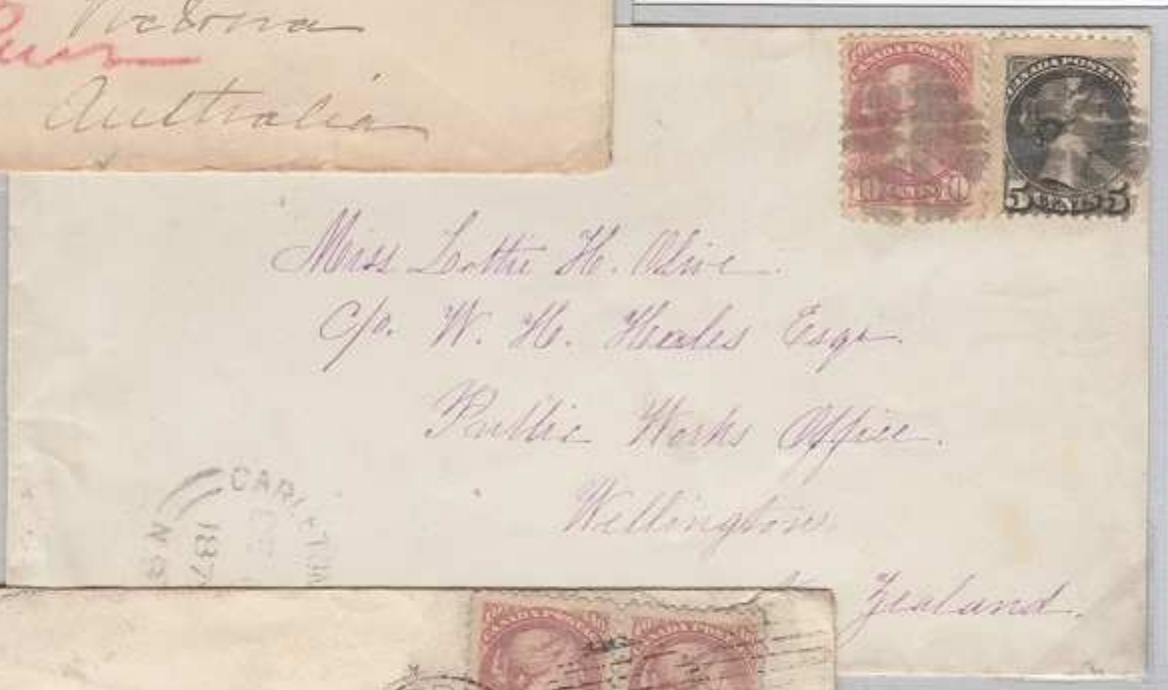 Victoria
Australia
CANADA POSTAGE
10 CENTS 10
CANADA POSTAGE
5 CENTS 5
Miss Lottie H. Olive.
c/o. W. H. Heales Esqr.
Public Works Office.
Wellington.
Zealand.
187
CANADA POSTAGE
CANADA POST